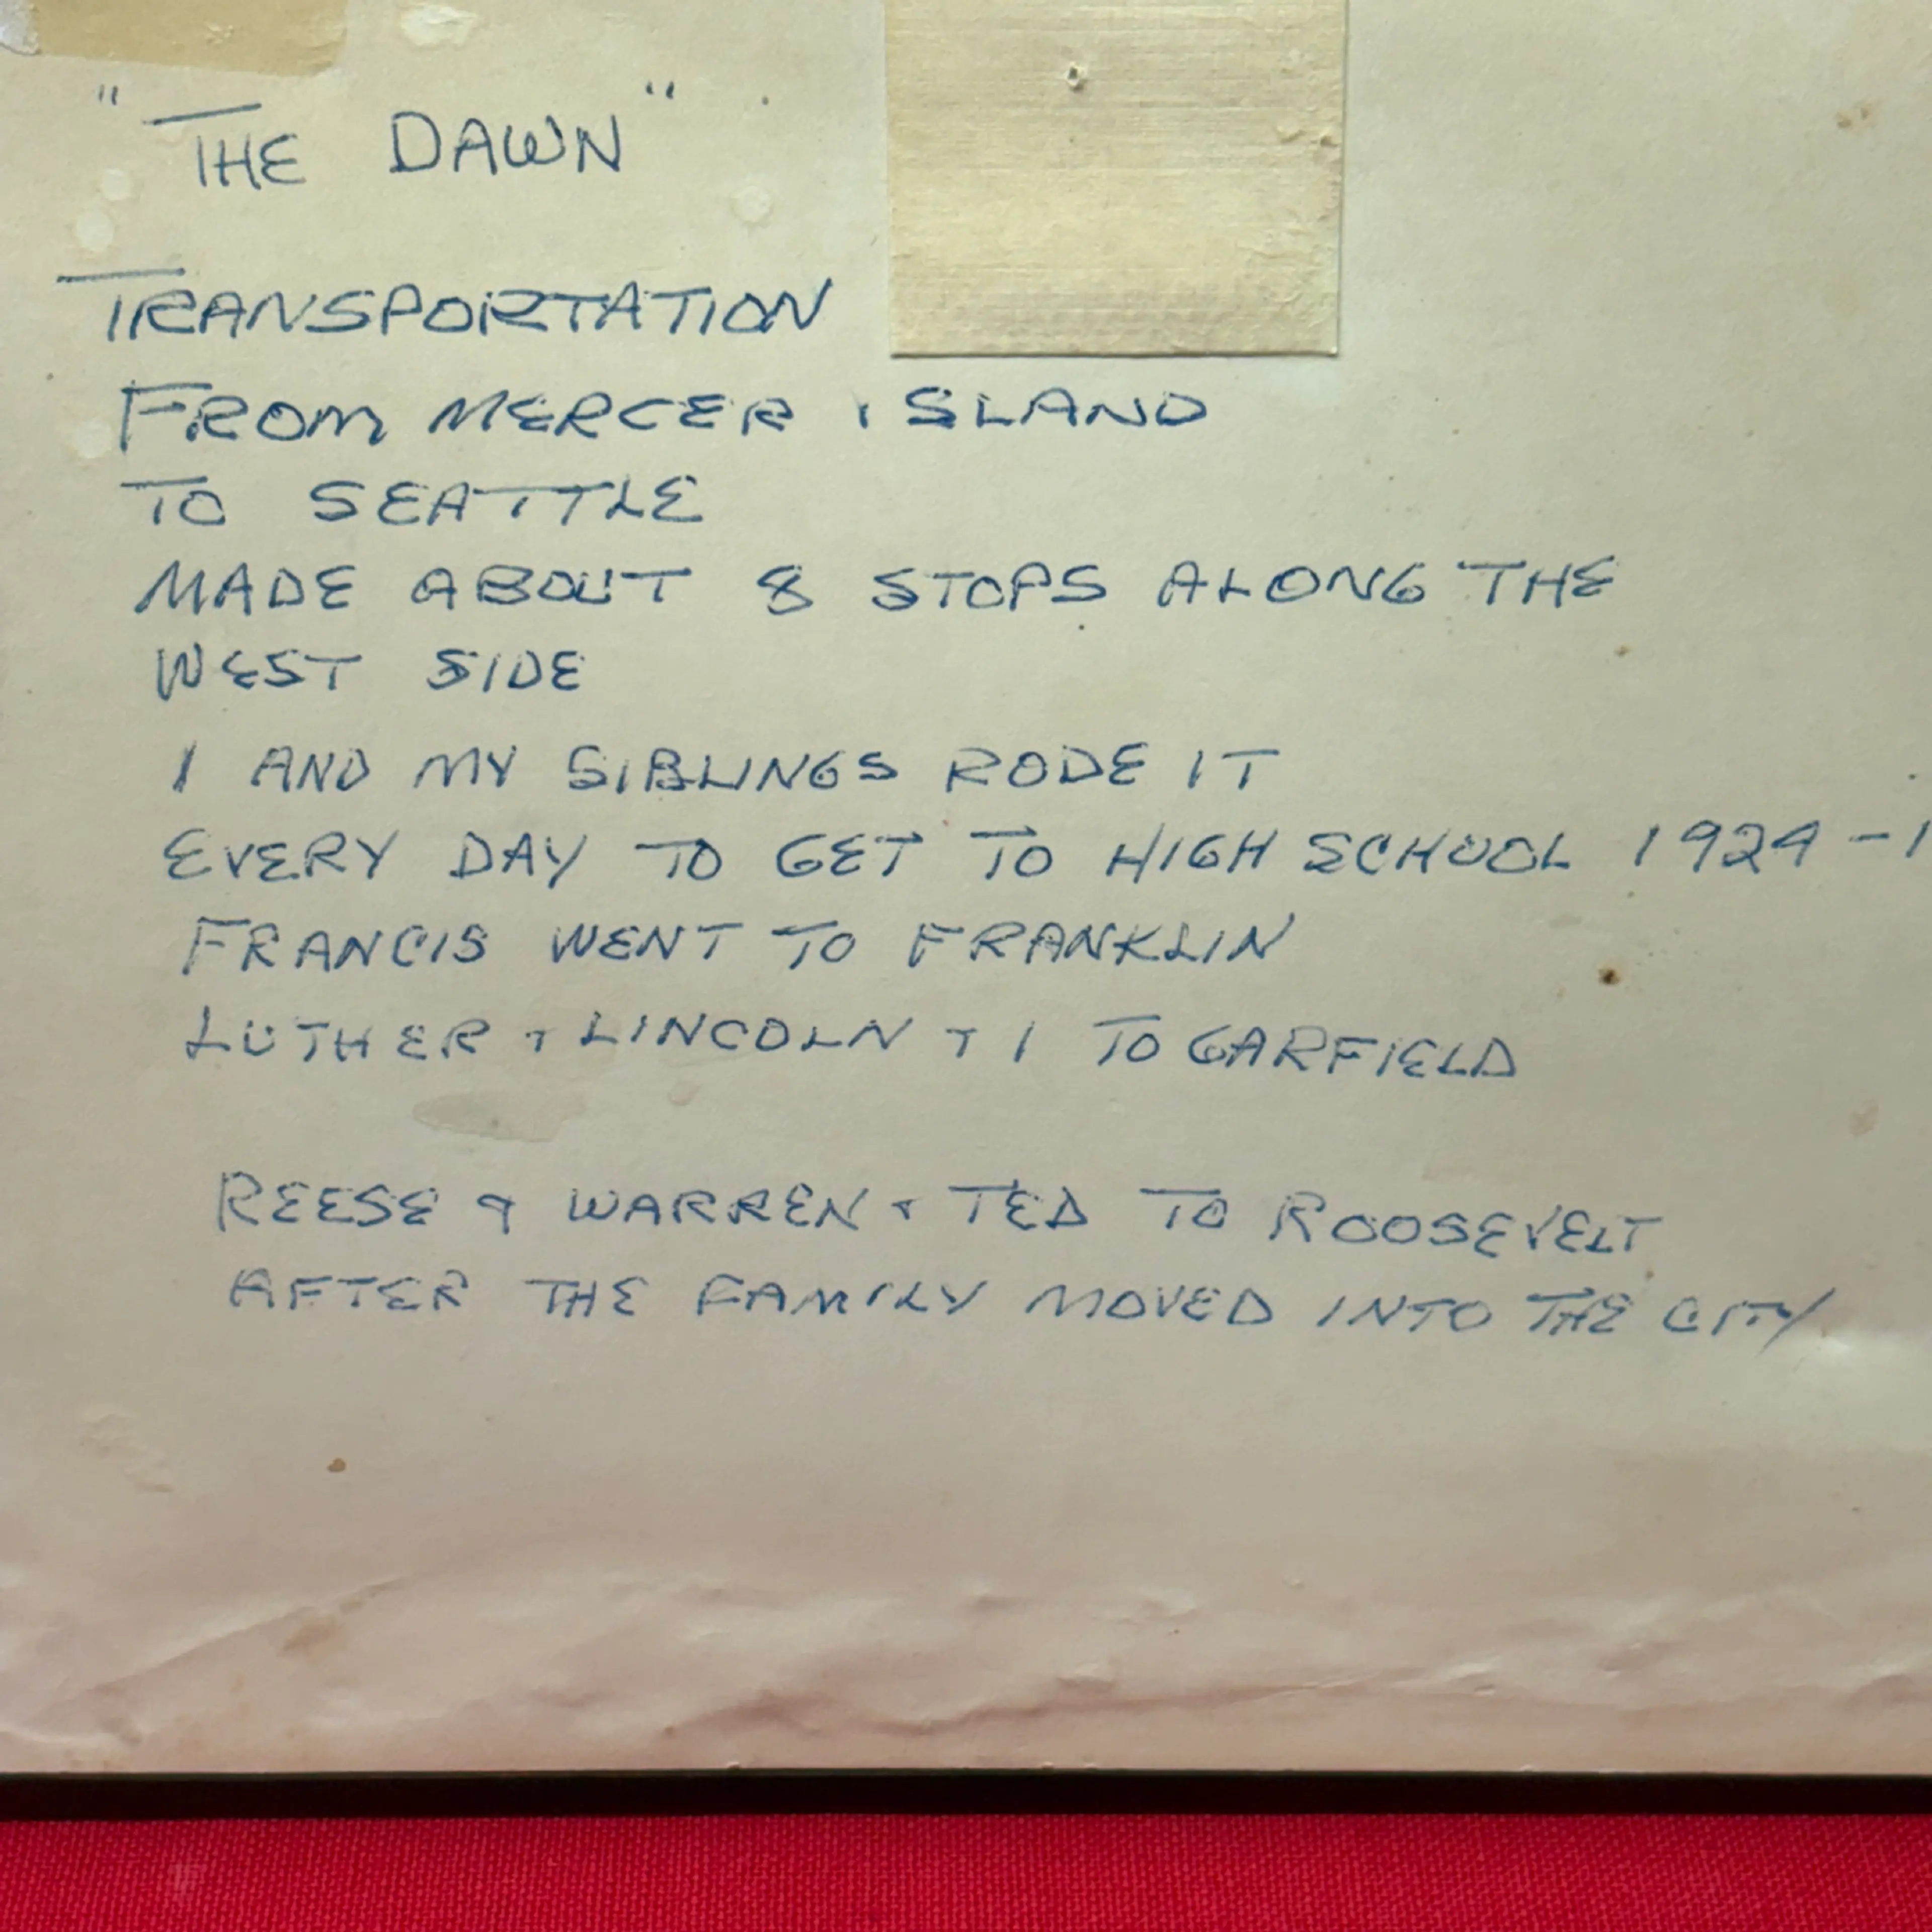 "THE DAWN"
TRANSPORTATION
FROM MERCER ISLAND
TO SEATTLE
MADE ABOUT 8 STOPS ALONG THE
WEST SIDE
I AND MY SIBLINGS RODE IT
EVERY DAY TO GET TO HIGH SCHOOL 1924 - 1
FRANCIS WENT TO FRANKLIN
LUTHER + LINCOLN + I TO GARFIELD
REESE & WARREN + TED TO ROOSEVELT
AFTER THE FAMILY MOVED INTO THE CITY